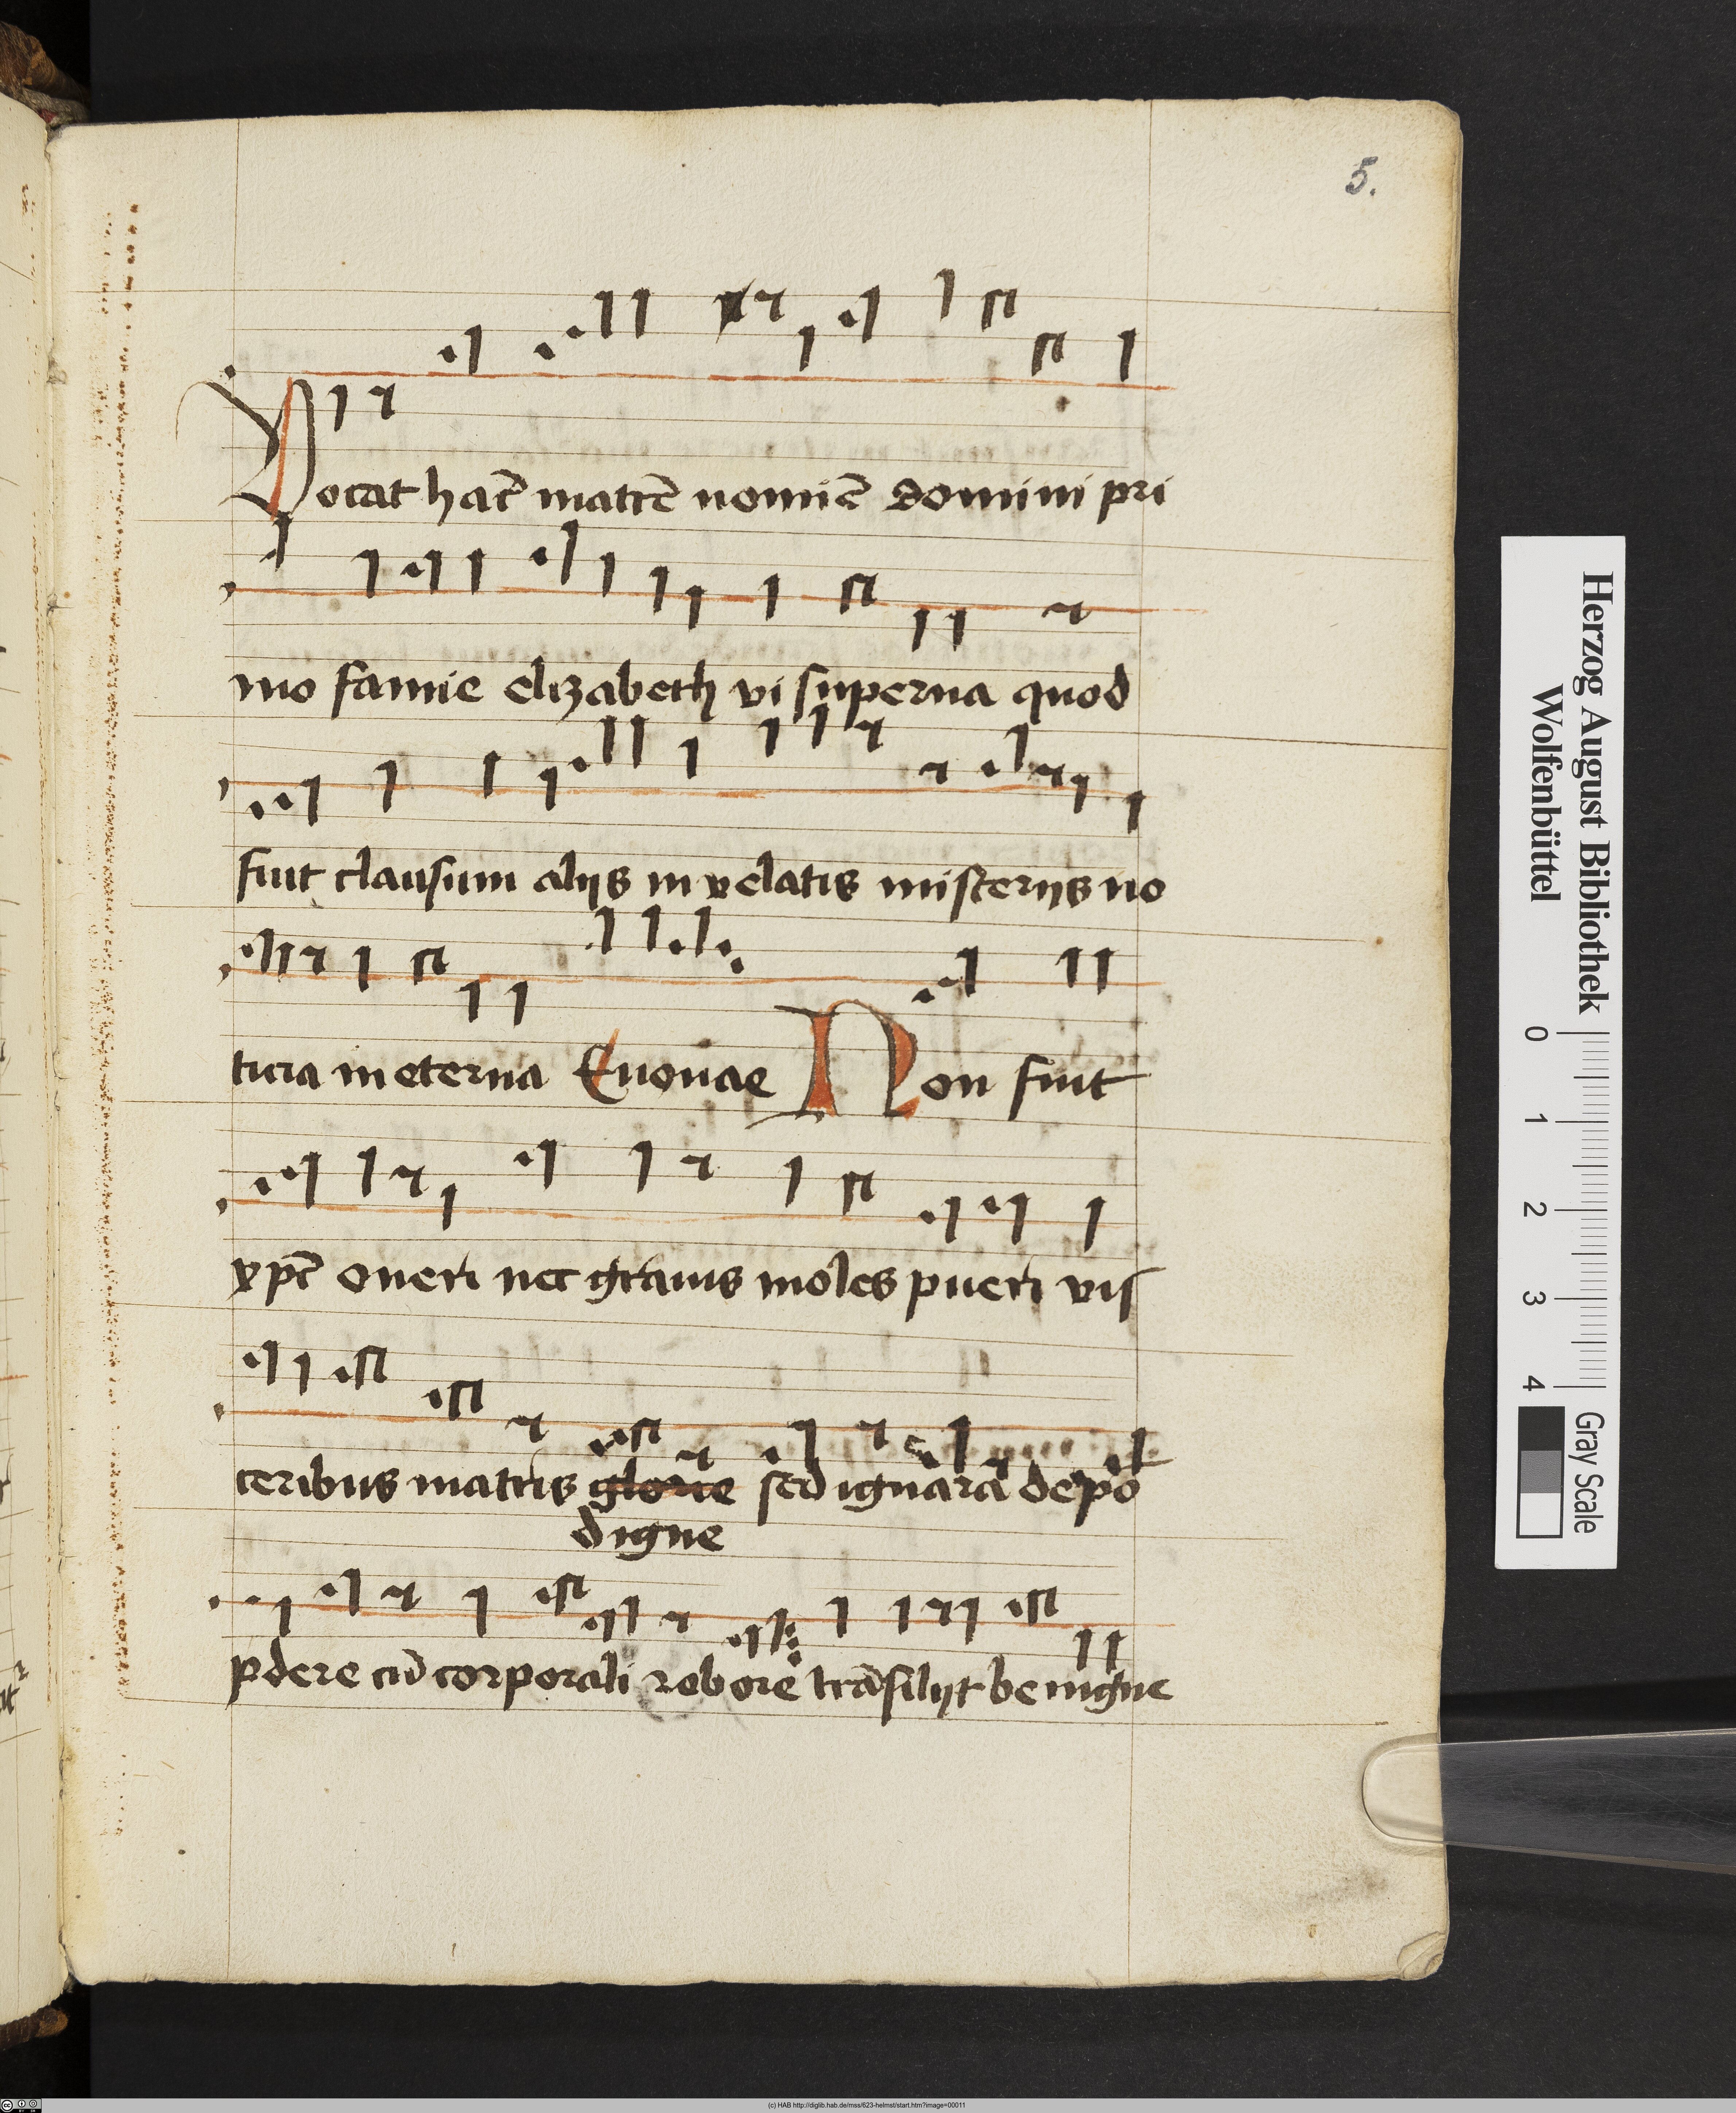 5.
Vocat hac̄ matrē nomīe domini pri
mo famīe elizabeth vi superna quod
fuit clausum alijs in velatis misterijs no
ticia in eterna Euouae Non fuit
xpc̄ oneri nec grauis moles pueri vis
ceribus matris glorie sed ignara depo
digne
pdere cū corporali robore trāsilijt benigne
Herzog August Bibliothek
Wolfenbüttel
0 1 2 3 4
Gray Scale
(c) HAB http://diglib.hab.de/mss/623-helmst/start.htm?image=00011